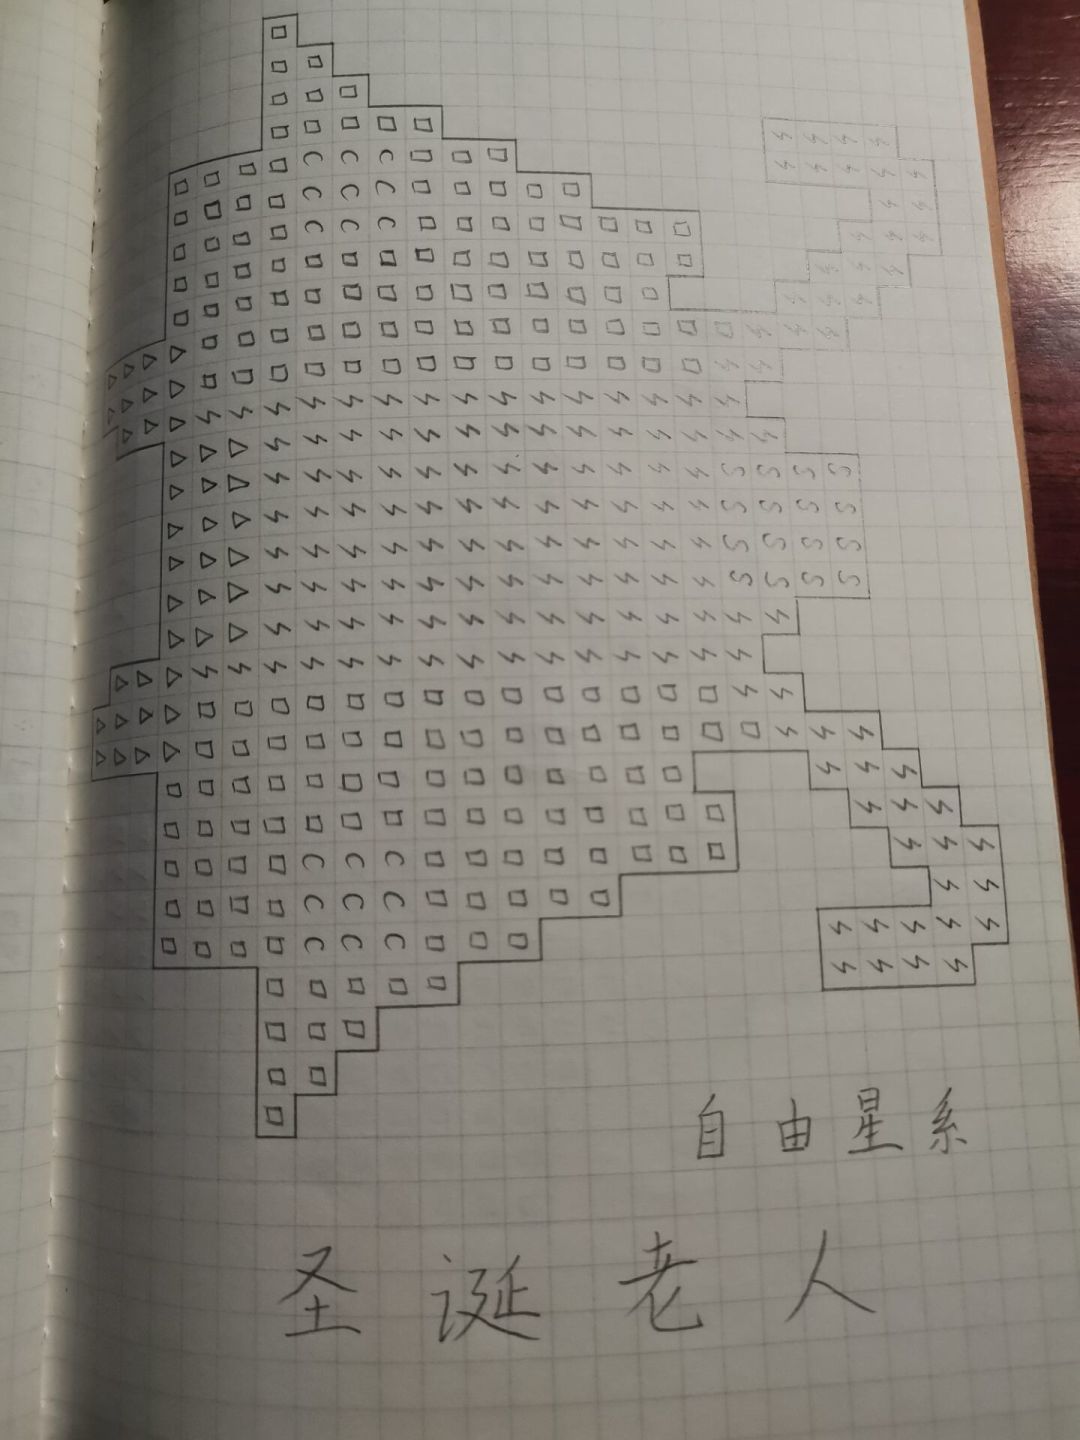 自由星系
圣诞老人